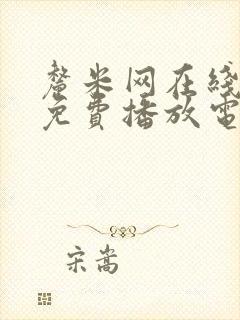 釐米网在线
免費播放電
宋嵩